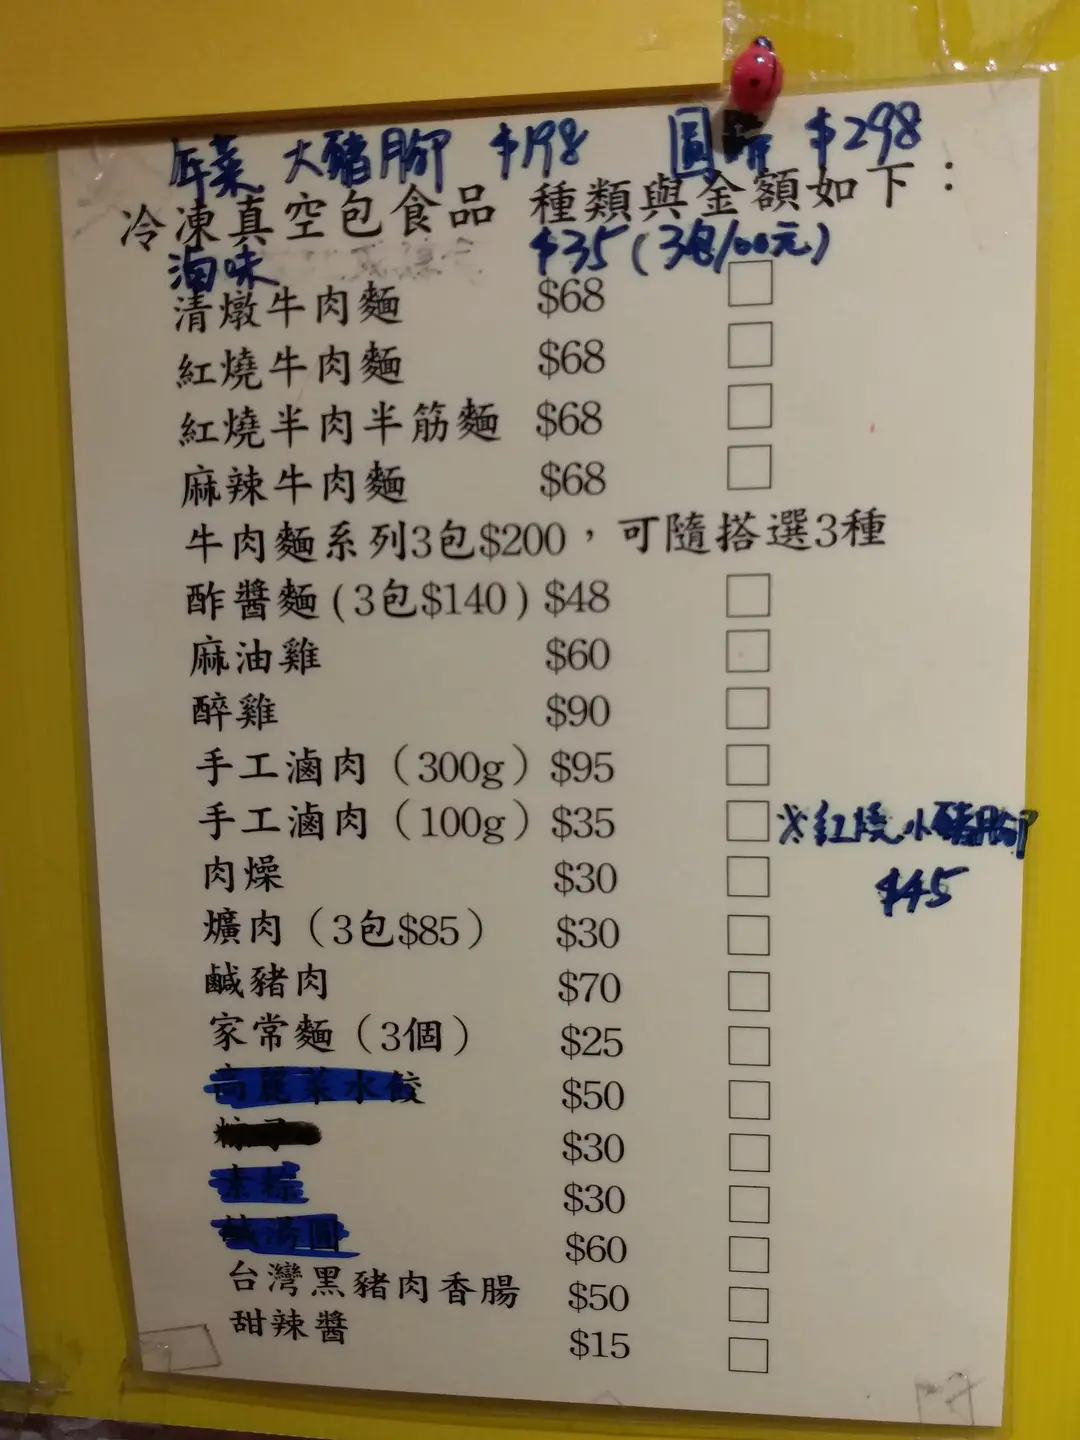 年菜 大豬腳 $198 圓 $298
冷凍真空包食品 種類與金額如下：
滷味 $35(3包100元)
清燉牛肉麵 $68 □
紅燒牛肉麵 $68 □
紅燒半肉半筋麵 $68 □
麻辣牛肉麵 $68 □
牛肉麵系列3包$200，可隨搭選3種
酢醬麵(3包$140) $48 □
麻油雞 $60 □
醉雞 $90 □
手工滷肉（300g）$95 □
手工滷肉（100g）$35 □ ※紅燒小豬腳
$45
肉燥 $30 □
爌肉（3包$85） $30 □
鹹豬肉 $70 □
家常麵（3個） $25 □
高麗菜水餃 $50 □
$30 □
素粽 $30 □
鹹湯圓 $60 □
台灣黑豬肉香腸 $50 □
甜辣醬 $15 □